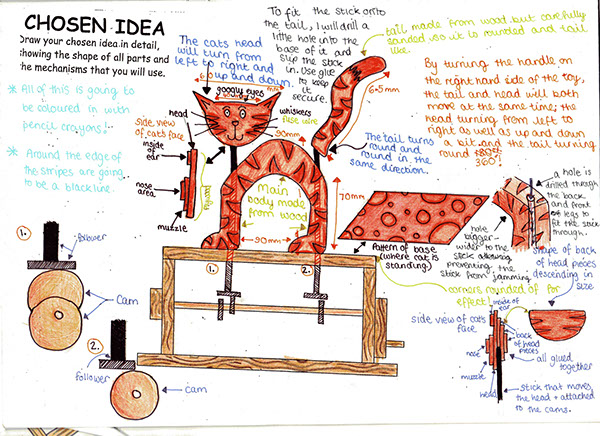 CHOSEN IDEA
Draw your chosen idea in detail,
showing the shape of all parts and
the mechanisms that you will use.
* All of this is going
to be coloured in with
pencil crayons!
* Around the edge of
the stripes are going
to be a black line.
The cats head
will turn from
left to right and
up and down.
To fit the stick onto
the tail, I will drill a
little hole into the
base of it and
slip the stick
in. Use glue
to keep
it
secure.
tail made from wood but carefully
sanded so it is rounded and tail
like.
65mm
By turning the handle on
the right hand side of the toy,
the tail and head will both
move at the same time; the
head turning from left to
right as well as up and down
a bit and the tail turning
round
360°!
googly eyes
whiskers
fuse wire
head
side view of
cat's face
inside of
ear
nose
area
muzzle
90mm
The tail turns
round and
round in the
same direction.
Main
body made
from wood
70mm
90mm
1.
2.
Pattern of base
(where cat is
standing).
hole
bigger-
wider to the
stick allowing
preventing the
stick from jamming
a hole is
drilled through
the back
and front
of legs to
fit the stick
through.
corners rounded of for
effect!
shape of back
of head pieces
descending in
size
1.
follower
cam
2.
follower
cam
side view of cat's
face
inside of
ear
nose
muzzle
head
back
of head
pieces
all glued
together
stick that moves
the head + attached
to the cams.